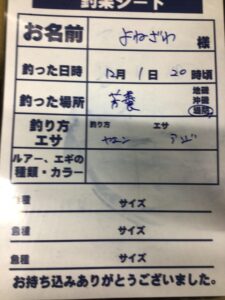 釣果シート
お名前 よねざわ 様
釣った日時 12月 1日 20時頃
釣った場所 芳養 地磯 沖磯 堤防
釣り方 エサ 釣り方 ヤエン エサ アジ
ルアー、エギの種類・カラー
魚種 サイズ
魚種 サイズ
魚種 サイズ
お持ち込みありがとうございました。